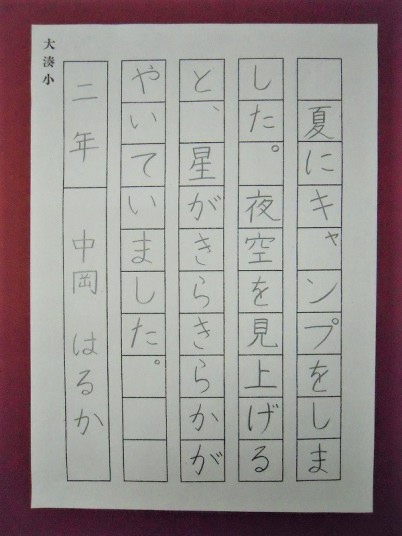 大湊小
夏にキャンプをしま
した。夜空を見上げる
と、星がきらきらかが
やいていました。
二年 中岡はるか